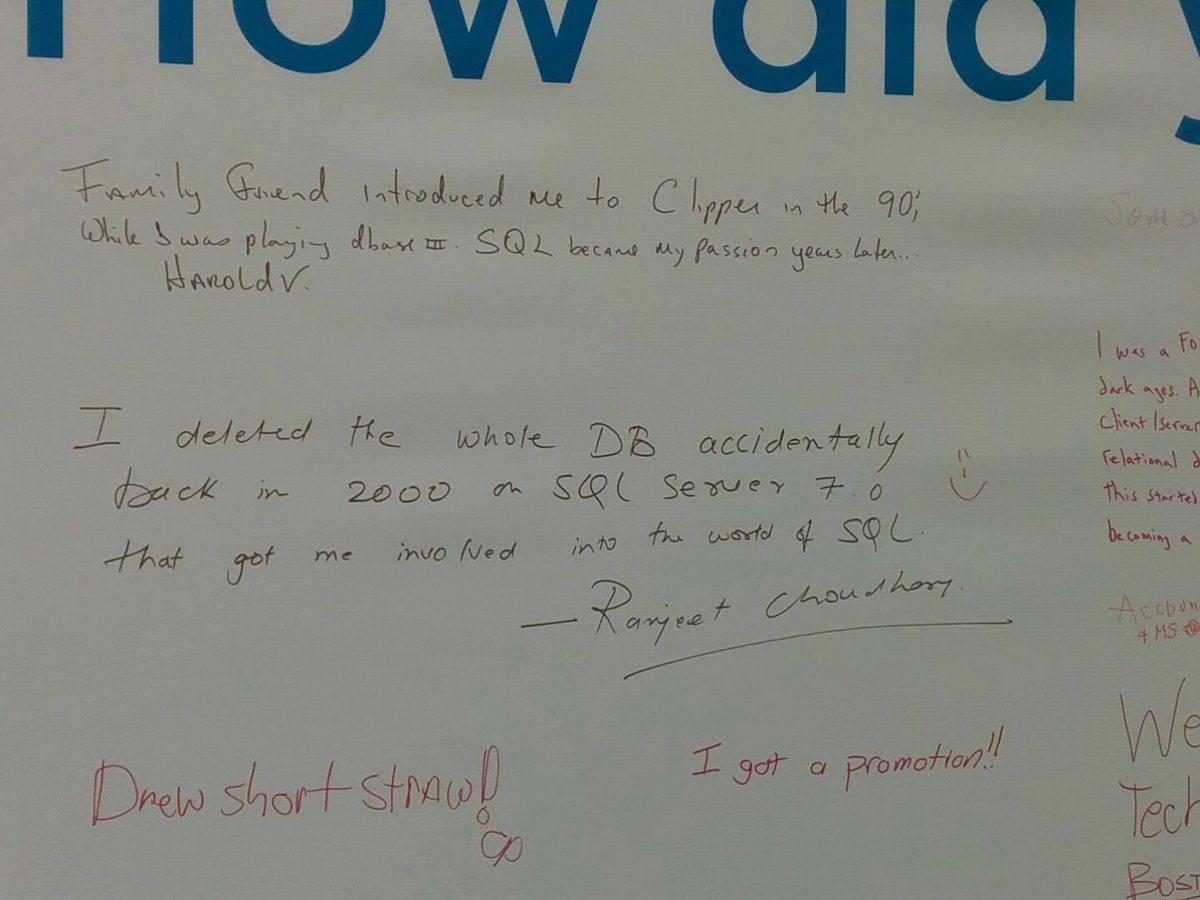 How did y
Family Friend introduced me to Clipper in the 90's,
While I was playing dbase III. SQL became my passion years later...
Harold V.
I deleted the whole DB accidentally
back in 2000 on SQL Server 7.0
that got me involved into the world of SQL.
— Ranjeet Choudhary.
Drew short straw!
I got a promotion!!
Someo
I was a Fo
dark ages. A
client/server
relational d
this started
becoming a
Accoun
+ MS
We
Tech
BOST